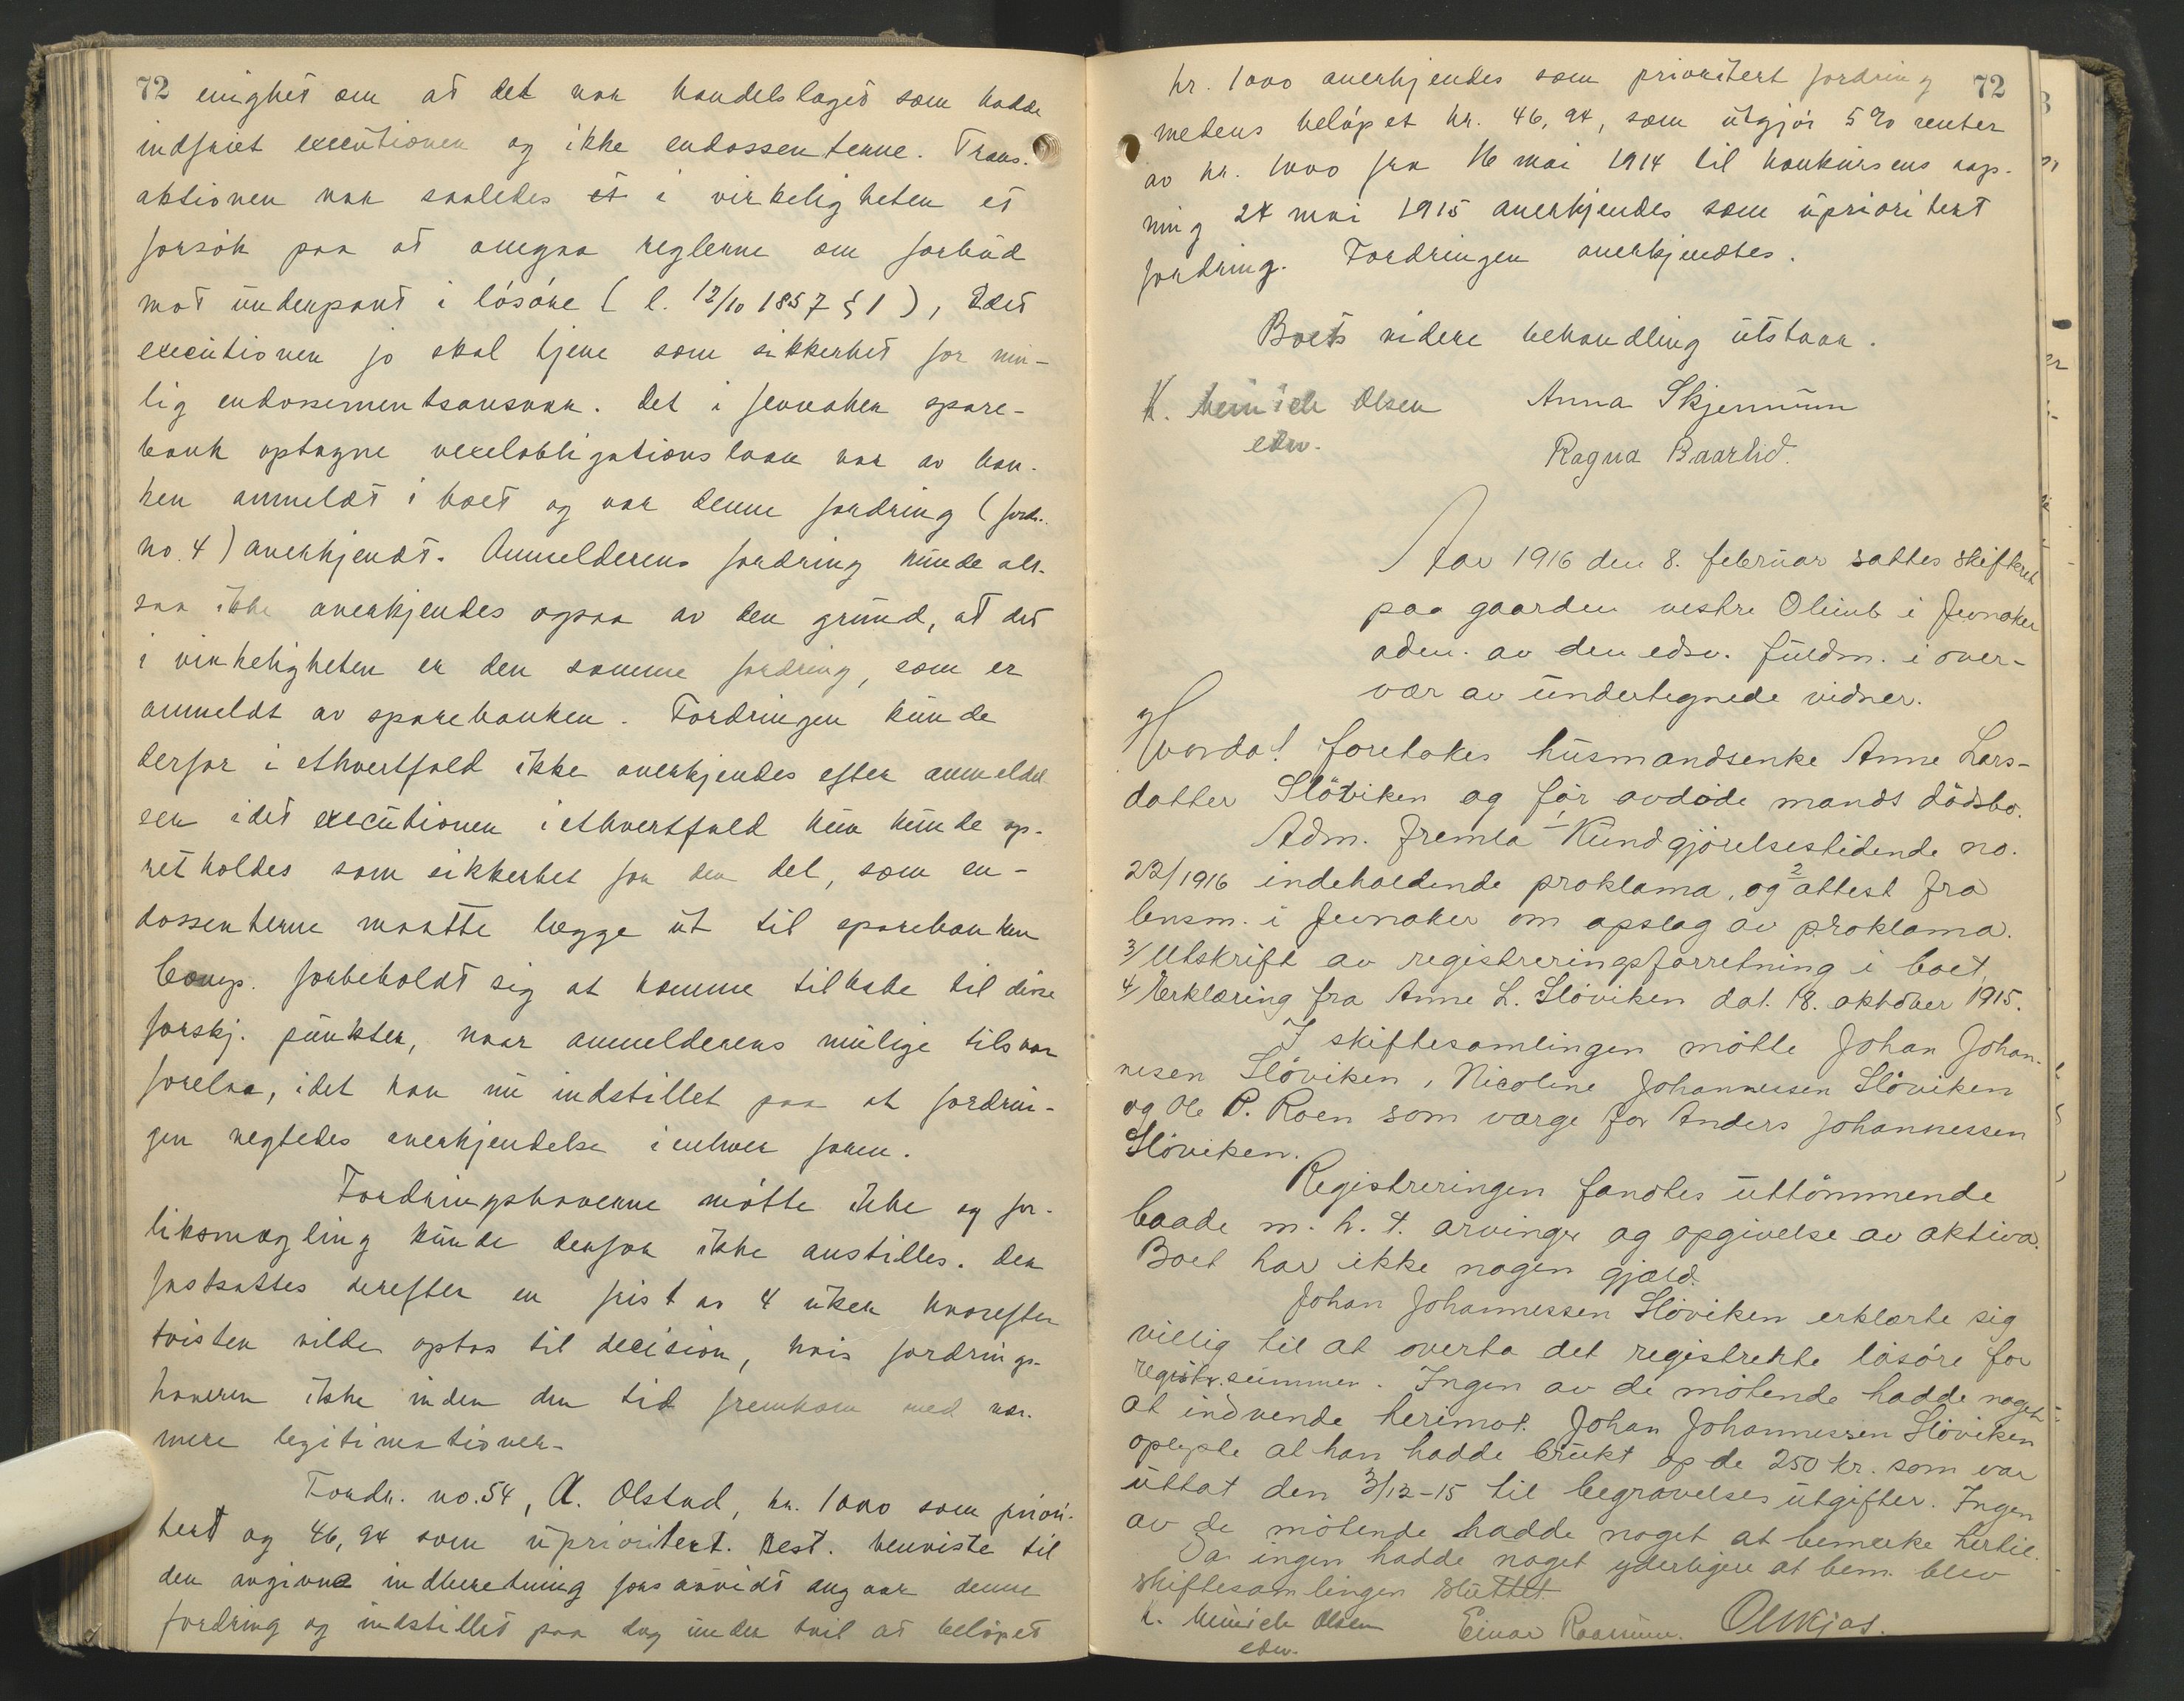 72 enighet om at det var handelslaget som hadde
indfriet executionen og ikke endossentene. Trans-
aktionen var saaledes et i virkeligheten et
forsøk paa at omgaa reglerne om forbud
mot underpant i løsøre ( l. 12/10 1857 § 1 ), idet
executionen jo skal tjene som sikkerhet for mu-
lig endossementsansvar. Det i Jevnaker spare-
bank optagne vexelobligationslaan var av ban-
ken anmeldt i boet og var denne fordring (fordr.
no. 4) anerkjendt. Anmelderens fordring kunde alt-
saa ikke anerkjendes ogsaa av den grund, at det
i virkeligheten er den samme fordring, som er
anmeldt av sparebanken. Fordringen kunde
derfor i ethvertfald ikke anerkjendes efter anmeldel
sen idet executionen i ethvertfald kun kunde op-
retholdes som sikkerhet for den del, som en-
dossenterne maatte lægge ut til sparebanken
Comp. forbeholdt sig at komme tilbake til disse
forskj. punkter, naar anmelderens mulige tilsvar
forelaa, idet han nu indstillet paa at fordrin-
gen negtedes anerkjendelse i enhver form.
Fordringshaverne møtte ikke og for-
liksmægling kunde derfor ikke anstilles. Der
fastsattes derefter en frist av 4 uker hvorefter
tvisten vilde optas til decision, hvis fordrings-
haveren ikke inden den tid fremkom med nær-
mere legitimationer.
Fordr. no. 54, A. Olstad, kr. 1000 som priori-
tert og 46,94 som uprioritert. Best. henviste til
den avgivne indberetning forsaavidt angaar denne
fordring og indstillet paa dog under tvil at beløpet
kr. 1000 anerkjendes som prioritert fordring 72
medens beløpet kr. 46,94, som utgjør 5 % renter
av kr. 1000 fra 16 mai 1914 til konkursens aap-
ning 24 mai 1915 anerkjendes som uprioritert
fordring. Fordringen anerkjendtes.
Boets videre behandling utstaar.
K. Heinrich Olsen Anna Skjennum
edsv. Ragna Baarlid.
Aar 1916 den 8. februar sattes skifteret
paa gaarden vestre Olimb i Jevnaker
adm. av den edsv. fuldm. i over-
vær av undertegnede vidner.
Hvorda! foretokes husmandsenke Anne Lars-
datter Sløviken og før avdøde mands dødsbo.
Adm. fremla 1/ Kundgjørelsestidende no.
22/1916 indeholdende proklama, og 2/ attest fra
lensm. i Jevnaker om opslag av proklama.
3/ Utskrift av registreringsforretning i boet,
4/ Erklæring fra Anne L. Sløviken dat. 18. oktober 1915.
I skiftesamlingen møtte Johan Johan-
nesen Sløviken, Nicoline Johannessen Sløviken
og Ole P. Roen som værge for Anders Johannessen
Sløviken.
Registreringen fandtes uttømmende
baade m. h. t. arvinger og opgivelse av aktiva.
Boet har ikke nogen gjæld.
Johan Johannessen Sløviken erklærte sig
villig til at overta det registrerte løsøre for
registr. summen. Ingen av de møtende hadde noget
at indvende herimot. Johan Johannessen Sløviken
oplyste at han hadde brukt op de 250 kr. som var
uttat den 3/12-15 til begravelsesutgifter. Ingen
av de møtende hadde noget at bemerke hertil.
Da ingen hadde noget yderligere at bem. blev
skiftesamlingen sluttet.
K. Heinrich Olsen Einar Raanum.
edsv.